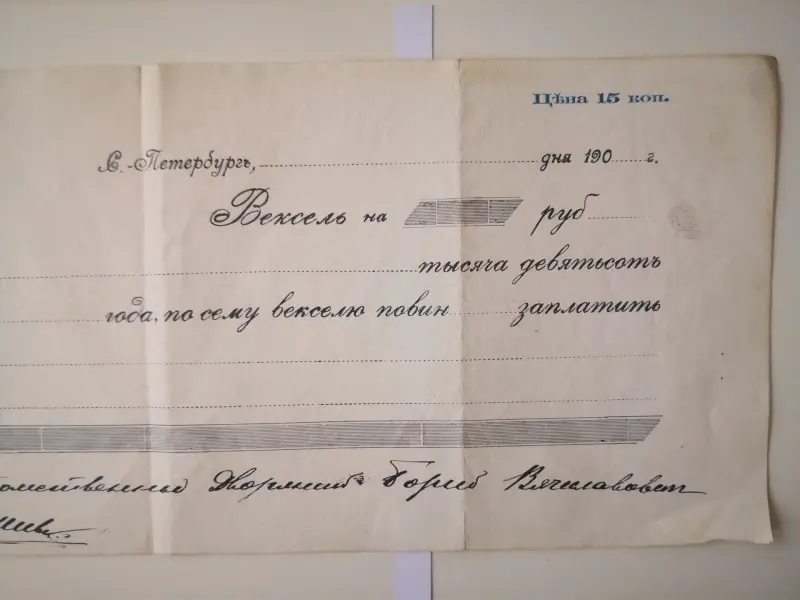 Цѣна 15 коп.
С.-Петербургъ, дня 190 г.
Вексель на руб
тысяча девятьсотъ
года, по сему векселю повин заплатить
Дворянинъ Борис Вячеславович